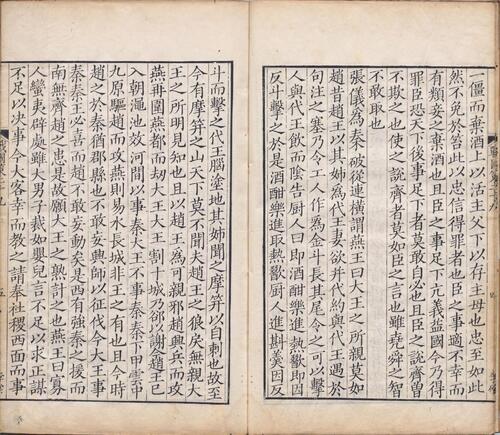 一僵而棄酒上以活主父下以存主母也忠至如此
然不免於笞此以忠信得罪者也臣之事適不幸而
有類妾之棄酒也且臣之事足下亢義益國今乃得
罪臣恐天下後事足下者莫敢自必也且臣之說齊曾
不欺之也使之說齊者莫如臣之言也雖堯舜之智
不敢取也
張儀爲秦破從連橫謂燕王曰大王之所親莫如
趙昔趙王以其姊爲代王妻欲并代約與代王遇於
句注之塞乃令工人作爲金斗長其尾令之可以擊
人與代王飲而陰告厨人曰即酒酣樂進熱歠即因
反斗擊之於是酒酣樂進取熱歠厨人進斟羹因反
斗而擊之代王腦塗地其姊聞之摩笄以自刺也故至
今有摩笄之山天下莫不聞夫趙王之狼戾無親大
王之所明見知也且以趙王爲可親邪趙興兵而攻
燕再圍燕都而劫大王大王割十城乃郤以謝今趙王已
入朝澠池效河間以事秦大王不事秦秦下甲雲中
九原驅趙而攻燕則易水長城非王之有也且今時
趙之於秦猶郡縣也不敢妄興師以征伐今大王事
秦秦王必喜而趙不敢妄動矣是西有強秦之援而
南無齊趙之患是故願大王之熟計之也燕王曰寡
人蠻夷辟處雖大男子裁如嬰兒言不足以求正謀
不足以決事今大客幸而教之請奉社稷西面而事